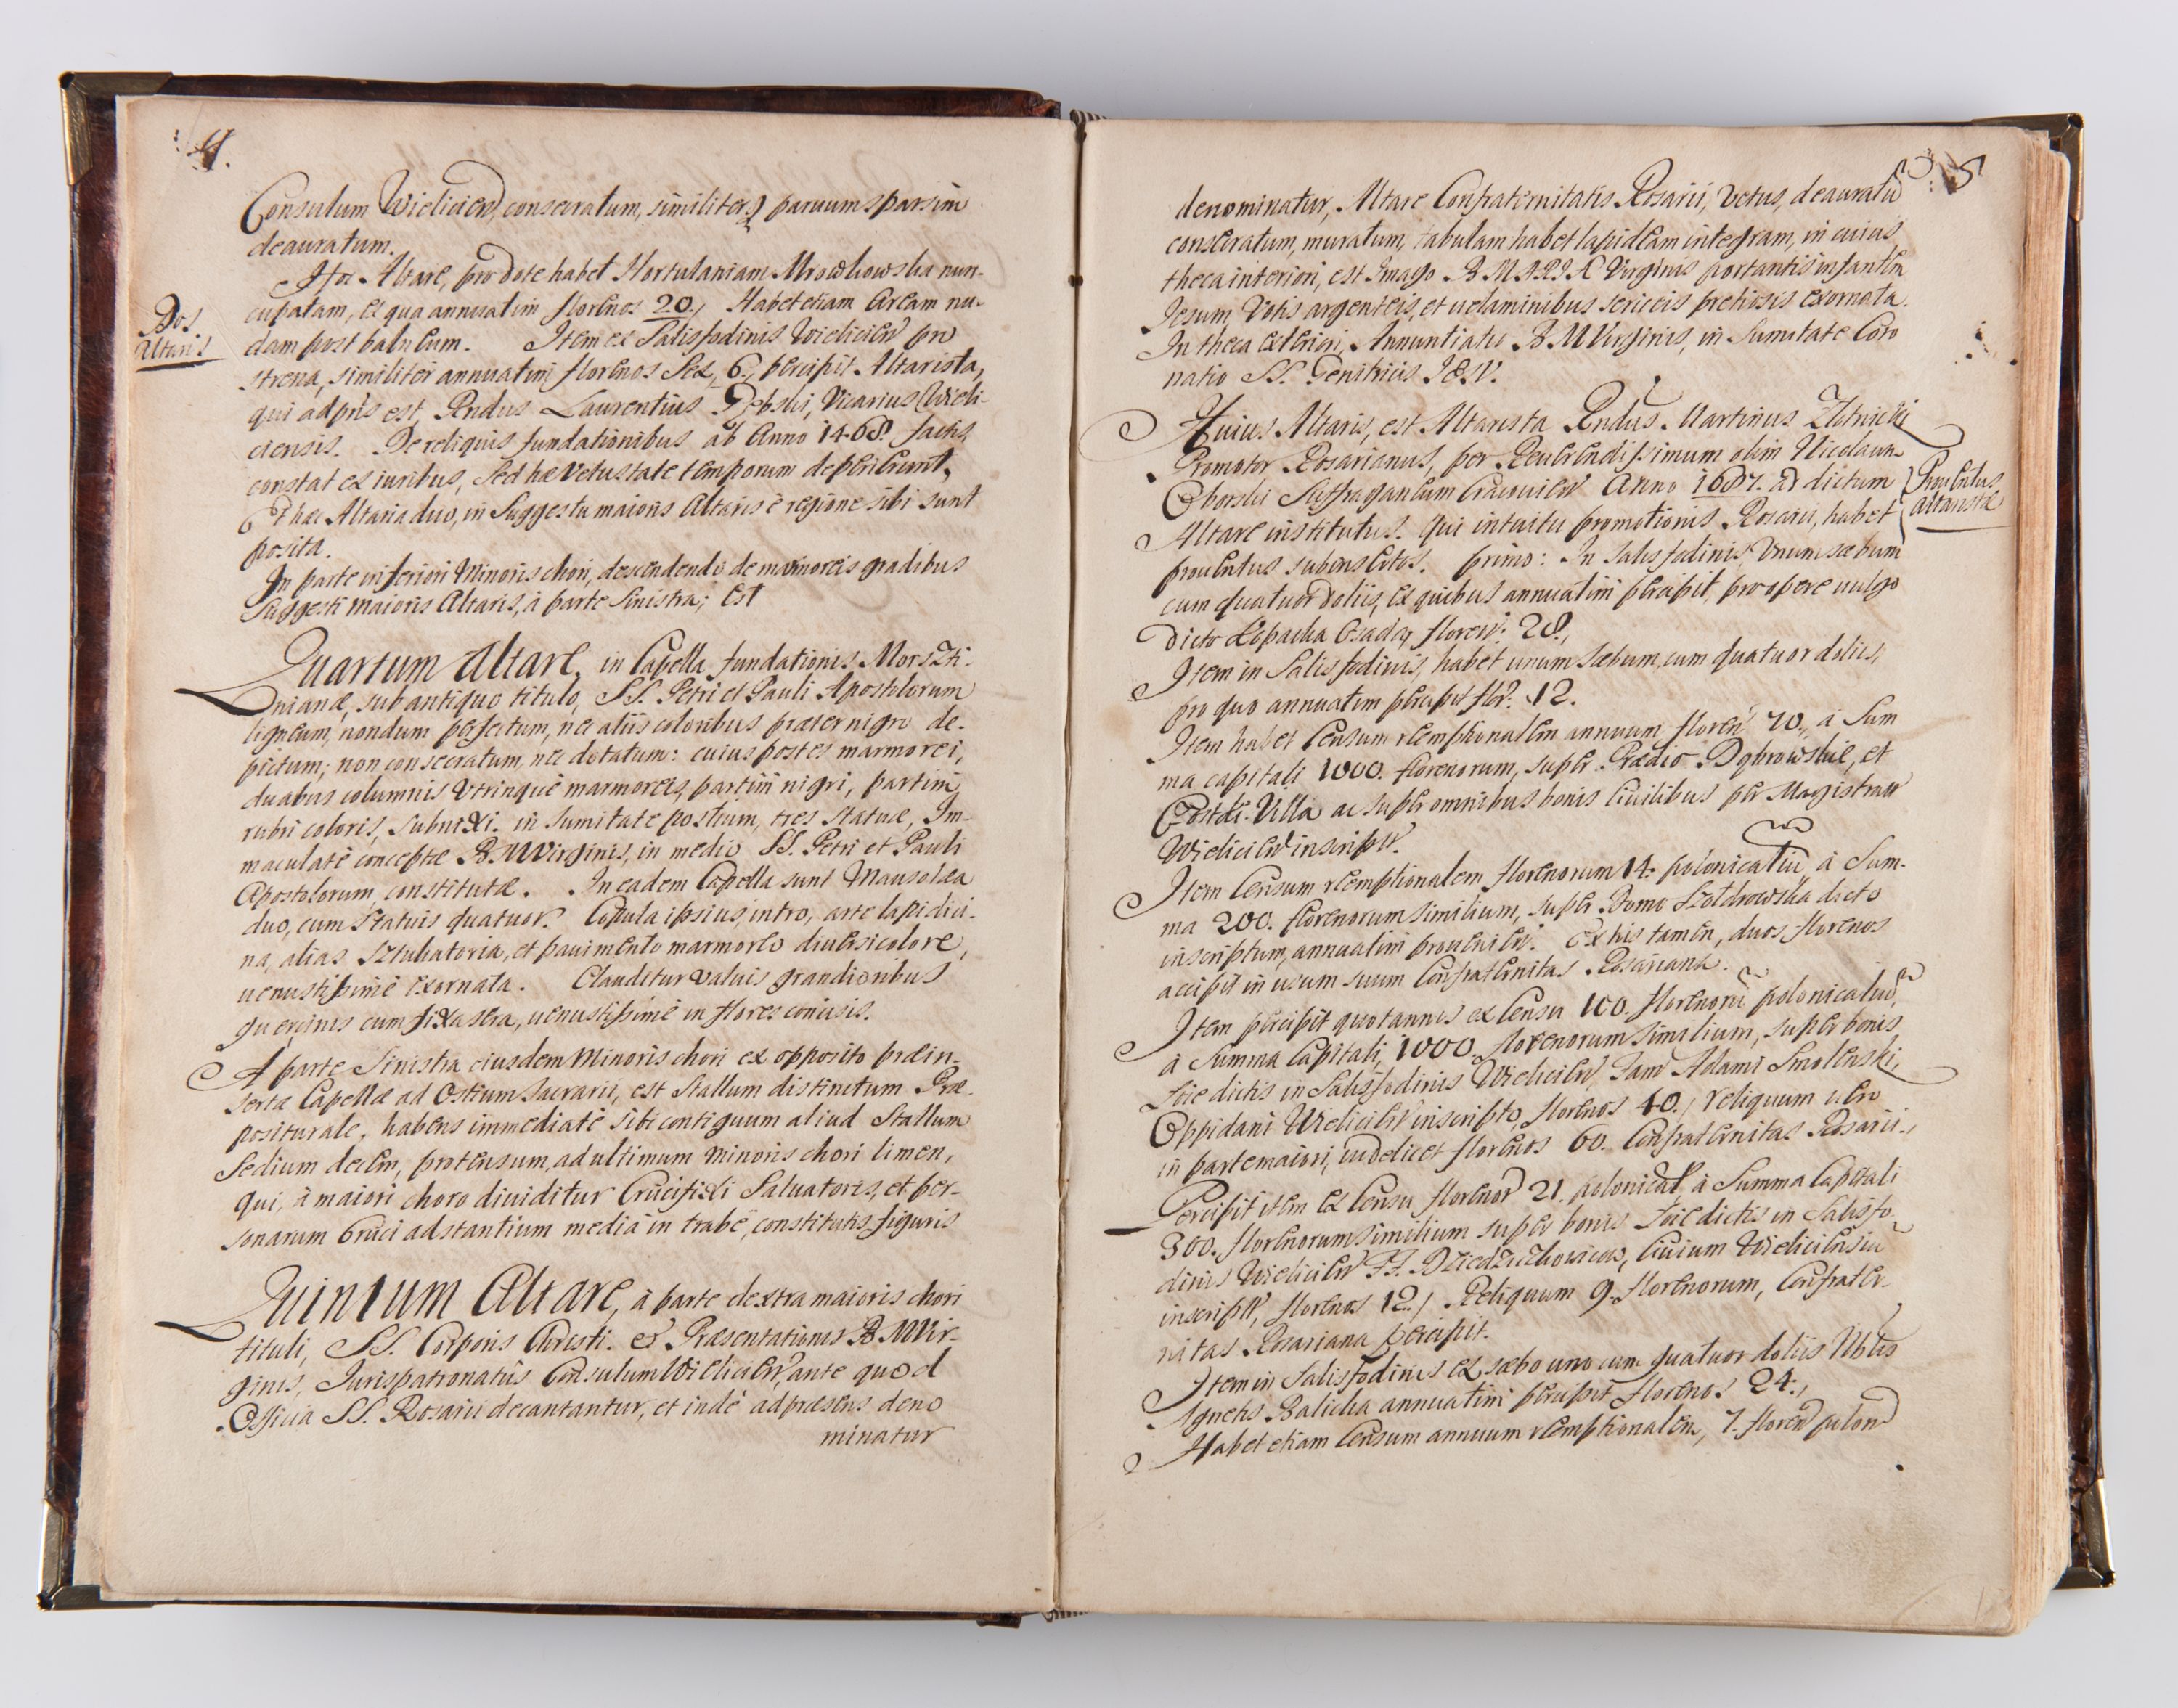 :4.
Consulum Wieliciem, consecratum, similiterq paruum sparsim
deauratum.
Hoc Altare, pro dote habet Hortulaniam Mrowkowska nun-
cupatam, ex qua annuatim florenos 20./ Habet etiam Aream nu-
Dos
Altaris
dam post balneum. Item ex Salisfodinis Wielicien pro
strena, similiter annuatim florenos Sex, 6., percipit Altarista,
qui ad pñs est, Rndus Laurentius Dębski, Vicarius Wieli-
ciensis. De reliquis fundationibus ab Anno 1468. factis,
constat ex iuribus, Sed hæ vetustate temporum deperierunt.
Et hæc Altaria duo, in Suggestu maioris Altaris è regione sibi sunt
posita.
In parte inferiori Minoris chori, descendendo de marmoreis gradibus
Suggesti maioris Altaris, à parte Sinistra; est
Quartum Altare, in Capella fundationis Morszti-
nianæ, sub antiquo titulo, SS. Petri et Pauli Apostolorum
ligneum, nondum perfectum, nec aliis coloribus præter nigro de-
pictum; non consecratum, nec dotatum: cuius postes marmorei,
duabus columnis Vtrinque marmoreis, partim nigri, partim
rubri coloris, subnixi. in sumitate postium, tres Statuæ, Im-
maculatè conceptæ B. M Virginis, in medio SS. Petri et Pauli
Apostolorum, constitutæ. In eadem Capella sunt Mausolæa
duo, cum Statuis quatuor. Copula ipsius, intro, arte lapidici-
na, alias Sztukatoria, et pauimento marmoreo diuersicolore,
uenustissimè exornata. Clauditur valuis grandioribus
quercinis cum fixa sera, uenustissimè in flores concisis.
A parte Sinistra eiusdem Minoris chori ex opposito præin-
sertæ Capellæ ad Ostium Sacrarii, est Stallum distinctum Præ-
positurale, habens immediatè sibi contiguum aliud Stallum
Sedium decem, protensum, ad ultimum minoris chori limen,
qui, à maiori choro diuiditur Crucifixi Saluatoris, et per-
sonarum Cruci adstantium media in trabe, constitutis figuris
Quintum Altare, à parte dextra maioris chori
tituli, SS. Corporis Christi. et Præsentationis B. M Vir-
ginis, Jurispatronatûs Consulum Wielicien, ante quod
Officia SS. Rosarii decantantur, et indè ad præsens deno
minatur
5
denominatur, Altare Confraternitatis Rosarii, vetus, deauratũ
consecratum, muratum, tabulam habet lapideam integram, in cuius
theca interiori, est Imago B. MARIÆ Virginis portantis infantem
Jesum Votis argenteis, et uelaminibus sericeis pretiosis exornata.
In theca exteriori, Annuntiatio B M Virginis, in Sumitate Coro
natio SS. Genitricis IESV.
Huius Altaris, est Altarista Rndus Martinus Złotnicki
Promotor Rosarianus, per Reuerendissimum olim Nicolaum
Oborski Suffraganeum Cracouien Anno 1687. ad dictum
Prouentus
Altaristæ
Altare institutus. Qui intuitu promotionis Rosarii, habet
prouentus subinsertos. primo: In Salisfodinis, Vnum sæbum
cum quatuor doliis, ex quibus annuatim percipit, pro opere uulgo
dicto Kopacka Osada, floren: 28.,
Item in Salisfodinis, habet unum Sæbum, cum quatuor doliis,
pro quo annuatim percipit flor. 12.
Item habet Censum reemptionalem annuum floren 70., à Sum
ma capitali 1000. florenorum, super Prædio Dąbrowskie, et
Villa ac super omnibus bonis Ciuilibus per Magistrat
Wielicien inscript.
Item Censum reemptionalem florenorum 14. polonicaliũ à Sum-
ma 200. florenorum similium, super Domo Szołdrowska dicto
inscriptum, annuatim prouenien. Ex his tamen, duos florenos
accipit in usum suum Confraternitas Rosariana.
Item percipit quotannis ex Censu 100. florenorũ polonicaliũ,
à Summa Capitali, 1000. florenorum similium, super bonis
Soie dictis in Salisfodinis Wielicien, Fam Adami Smolenski,
Oppidani Wielicien inscripto, florenos 40./ reliquum uero
in parte maiori, uidelicet florenos 60. Confraternitas Rosarii.,
Percipit item ex Censu florenor 21. polonical, à Summa Capitali
300. florenorum similium super bonis Soie dictis in Salisfo-
dinis Wielicien FF. Dziedziczkowicow, Ciuium Wieliciensiũ
inscript, florenos 12./ Reliquum 9. florenorum, Confrater-
nitas Rosariana percipit.
Item in Salisfodinis ex sæbo uno cum quatuor doliis
Agnetis Balicka annuatim percipit florenos 24.,
Habet etiam Censum annuum reemptionalem, 7. floren polon